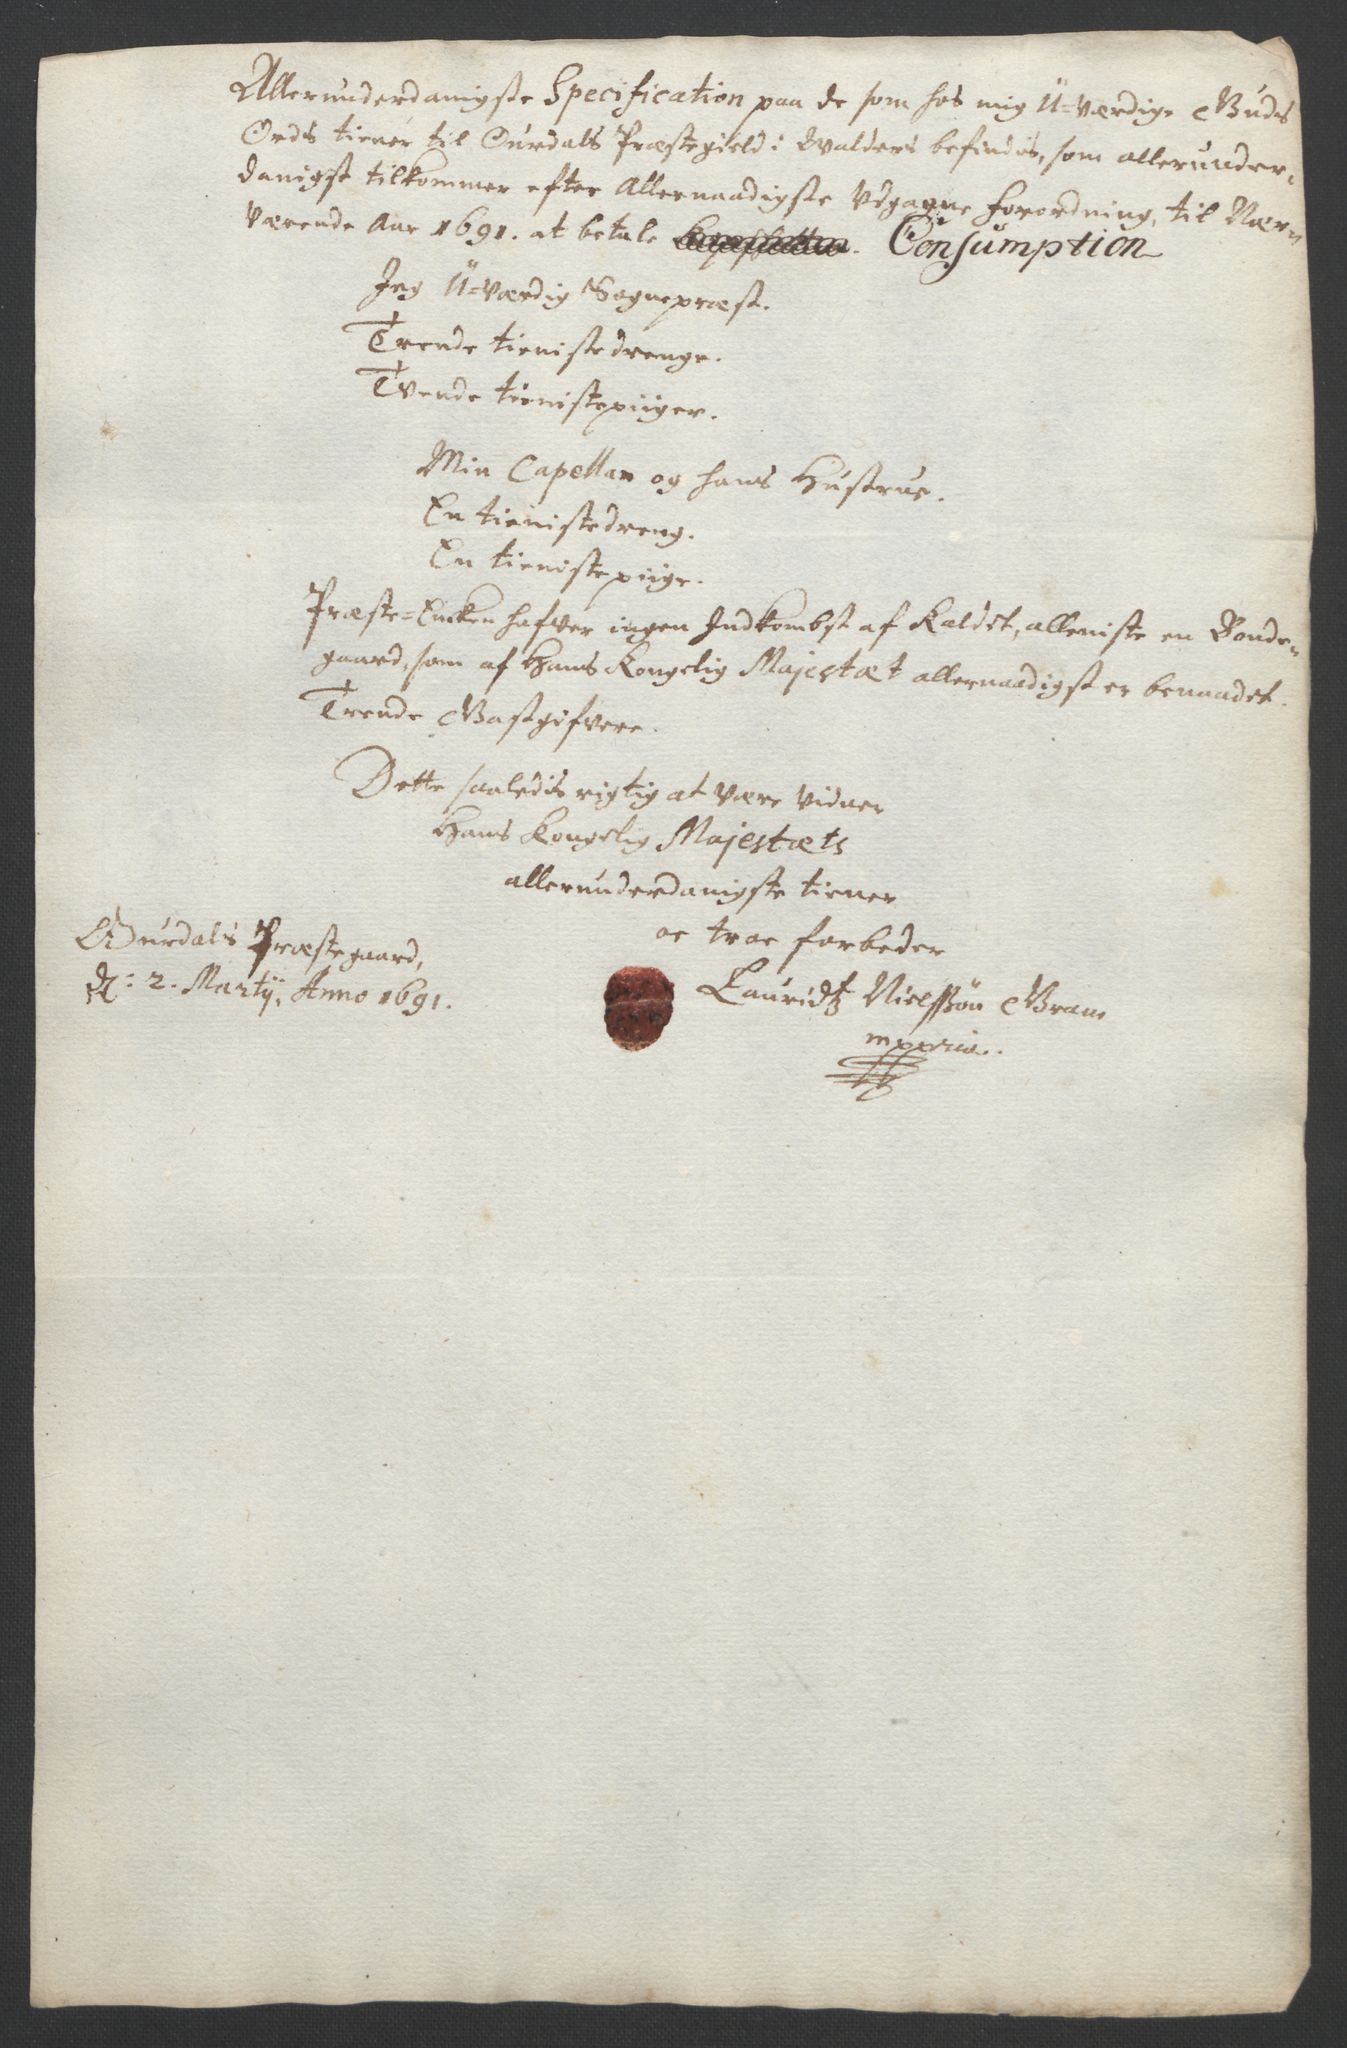 Allerunderdanigste Specification paa de som hos mig U=værdige Guds
Ords tiener til Ourdals Præstegield i Walders befindis, som allerunder=
danigst tilkommer efter Allernaadigste Udgagne Forordning, til Nær=
værende Aar 1691. at betale Consumption
Jeg U=værdig Sognepræst.
Trende tienistedrenge.
Tvende tienistepiiger.
Min Capellan og hans Hustrue.
En tienistedreng.
En tienistepiige.
Præste=Encken hafver ingen Indkombst af Kaldet, alleniste en Bonde=
gaard, som af Hans Kongelig Majestæt allernaadigst er benaadet.
Trende Gastgifvere.
Dette saaledis rigtig at være vidner
Hans Kongelig Majestæts
allerunderdanigste tiener
oc troe forbeder
Ourdals Præstegaard,
d: 2. Martij, Anno 1691.
Lauridtz Nielssøn Gram
mppria.